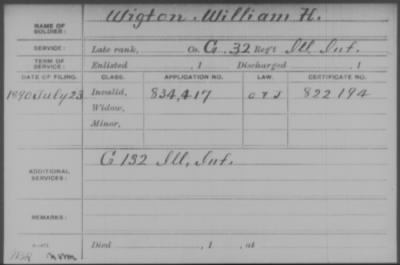 NAME OF SOLDIER: Wigton William H.
SERVICE: Late rank, Co. G. 32 Reg't Ill Inf.
TERM OF SERVICE: Enlisted , 1 Discharged , 1
DATE OF FILING. CLASS. APPLICATION NO. LAW. CERTIFICATE NO.
1890 July 23 Invalid, 834,417 822194
Widow,
Minor,
ADDITIONAL SERVICES: G 132 Ill, Inf.
REMARKS:
Died , 1 , at